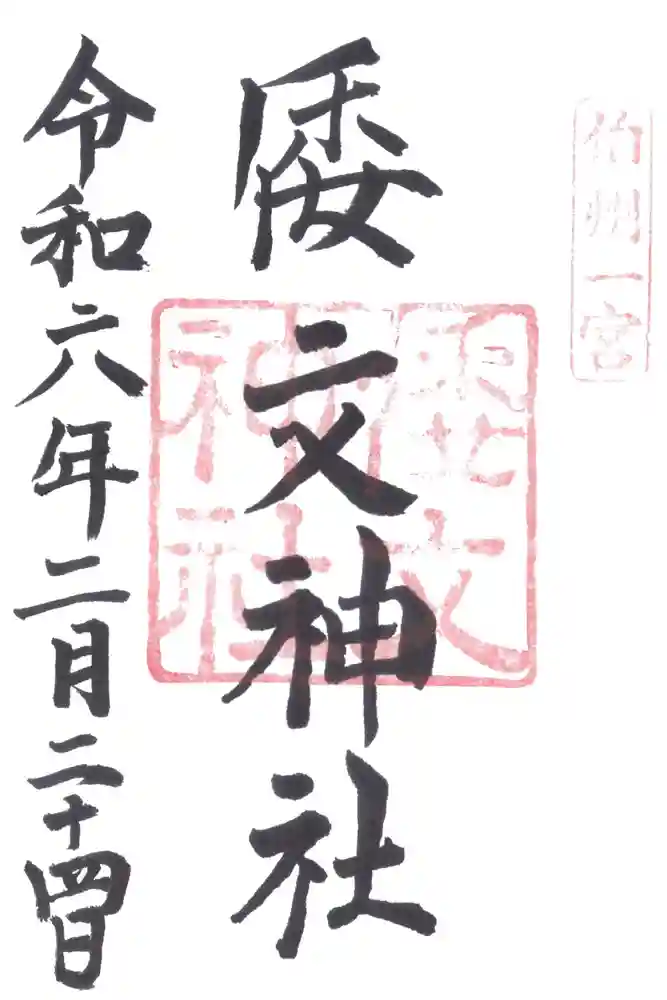 伯州一宮
倭文神社
倭文神社
令和六年二月二十四日